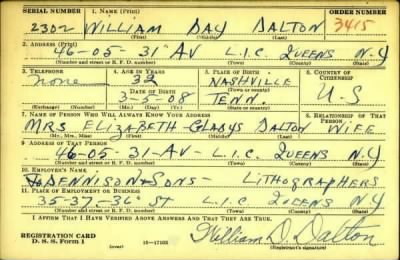 SERIAL NUMBER 1. NAME (Print) ORDER NUMBER
2302 WILLIAM DAY DALTON 3415
(First) (Middle) (Last)
2. ADDRESS (Print)
46-05-31 AV L.I.C. QUEENS N-Y
(Number and street or R. F. D. number) (Town) (County) (State)
3. TELEPHONE 4. AGE IN YEARS 5. PLACE OF BIRTH 6. COUNTRY OF CITIZENSHIP
none 32 NASHVILLE
DATE OF BIRTH (Town or county)
3-5-08 TENN. U-S
(Exchange) (Number) (Mo.) (Day) (Yr.) (State or country)
7. NAME OF PERSON WHO WILL ALWAYS KNOW YOUR ADDRESS 8. RELATIONSHIP OF THAT PERSON
MRS ELIZABETH-GLADYS DALTON WIFE
(Mr., Mrs., Miss) (First) (Middle) (Last)
9. ADDRESS OF THAT PERSON
46-05-31 AV- L.I.C. QUEENS NY
(Number and street or R. F. D. number) (Town) (County) (State)
10. EMPLOYER'S NAME
DENNISON & SONS - LITHOGRAPHERS
11. PLACE OF EMPLOYMENT OR BUSINESS
35-37-36 ST L.I.C QUEENS N-Y
(Number and street or R. F. D. number) (Town) (County) (State)
I AFFIRM THAT I HAVE VERIFIED ABOVE ANSWERS AND THAT THEY ARE TRUE.
REGISTRATION CARD
D. S. S. Form 1 (over) 16-17105 William D. Dalton
(Registrant's signature)